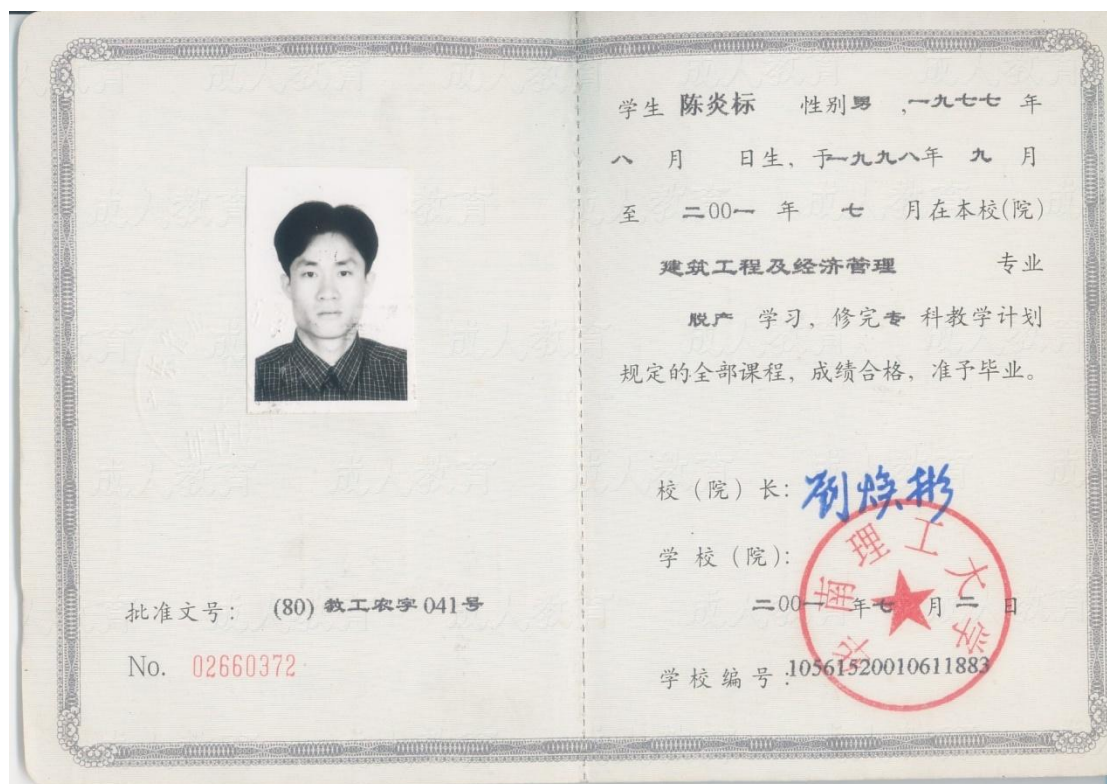 批准文号： (80) 教工农字 041号
No. 02660372
学生 陈炎标 性别男 ,一九七七 年
八 月 日生，于一九九八年 九 月
至 二00一 年 七 月在本校(院)
建筑工程及经济管理 专业
脱产 学习，修完专 科教学计划
规定的全部课程，成绩合格，准予毕业。
校（院）长：刘焕彬
学 校（院）：
华南理工大学
二00一 年七 月 二 日
学校编号：10561520010611883
成人教育